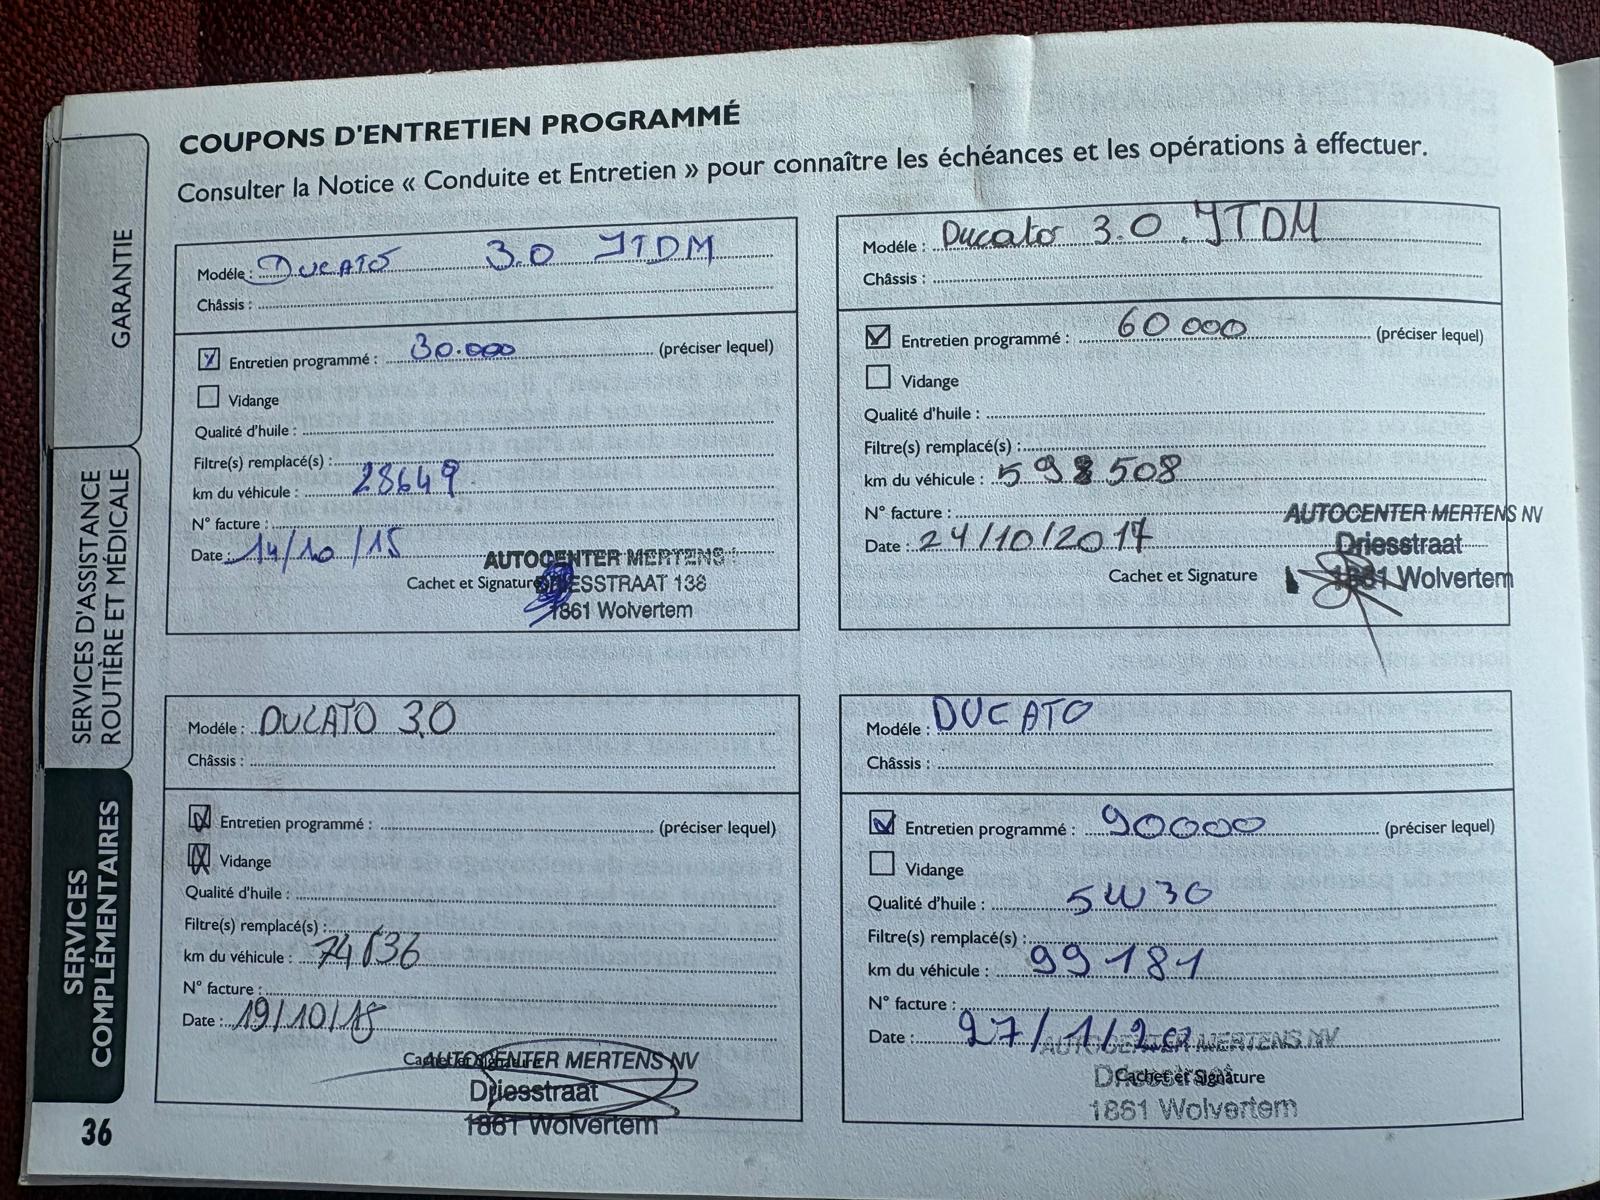 COUPONS D'ENTRETIEN PROGRAMMÉ
Consulter la Notice « Conduite et Entretien » pour connaître les échéances et les opérations à effectuer.
GARANTIE
SERVICES D'ASSISTANCE
ROUTIÈRE ET MÉDICALE
SERVICES
COMPLÉMENTAIRES
Modéle : DUCATO 3.0 JTDM
Châssis :
Entretien programmé : 30.000 (préciser lequel)
Vidange
Qualité d'huile :
Filtre(s) remplacé(s) :
km du véhicule : 28649
N° facture :
Date : 14/10/15
AUTOCENTER MERTENS
Cachet et Signature DRIESSTRAAT 138
1861 Wolvertem
Modéle : Ducato 3.0 JTDM
Châssis :
Entretien programmé : 60 000 (préciser lequel)
Vidange
Qualité d'huile :
Filtre(s) remplacé(s) :
km du véhicule : 508
N° facture :
AUTOCENTER MERTENS NV
Date : 24/10/2017
Driesstraat
Cachet et Signature
1861 Wolvertem
Modéle : DUCATO 3.0
Châssis :
Entretien programmé : (préciser lequel)
Vidange
Qualité d'huile :
Filtre(s) remplacé(s) :
km du véhicule :
N° facture :
Date : 19/10/18
Cachet et Signature
AUTOCENTER MERTENS NV
Driesstraat
1861 Wolvertem
Modéle : DUCATO
Châssis :
Entretien programmé : 90000 (préciser lequel)
Vidange
Qualité d'huile : 5W30
Filtre(s) remplacé(s) :
km du véhicule : 99181
N° facture :
Date : 27/1/20
AUTOCENTER MERTENS NV
Driesstraat
Cachet et Signature
1861 Wolvertem
36